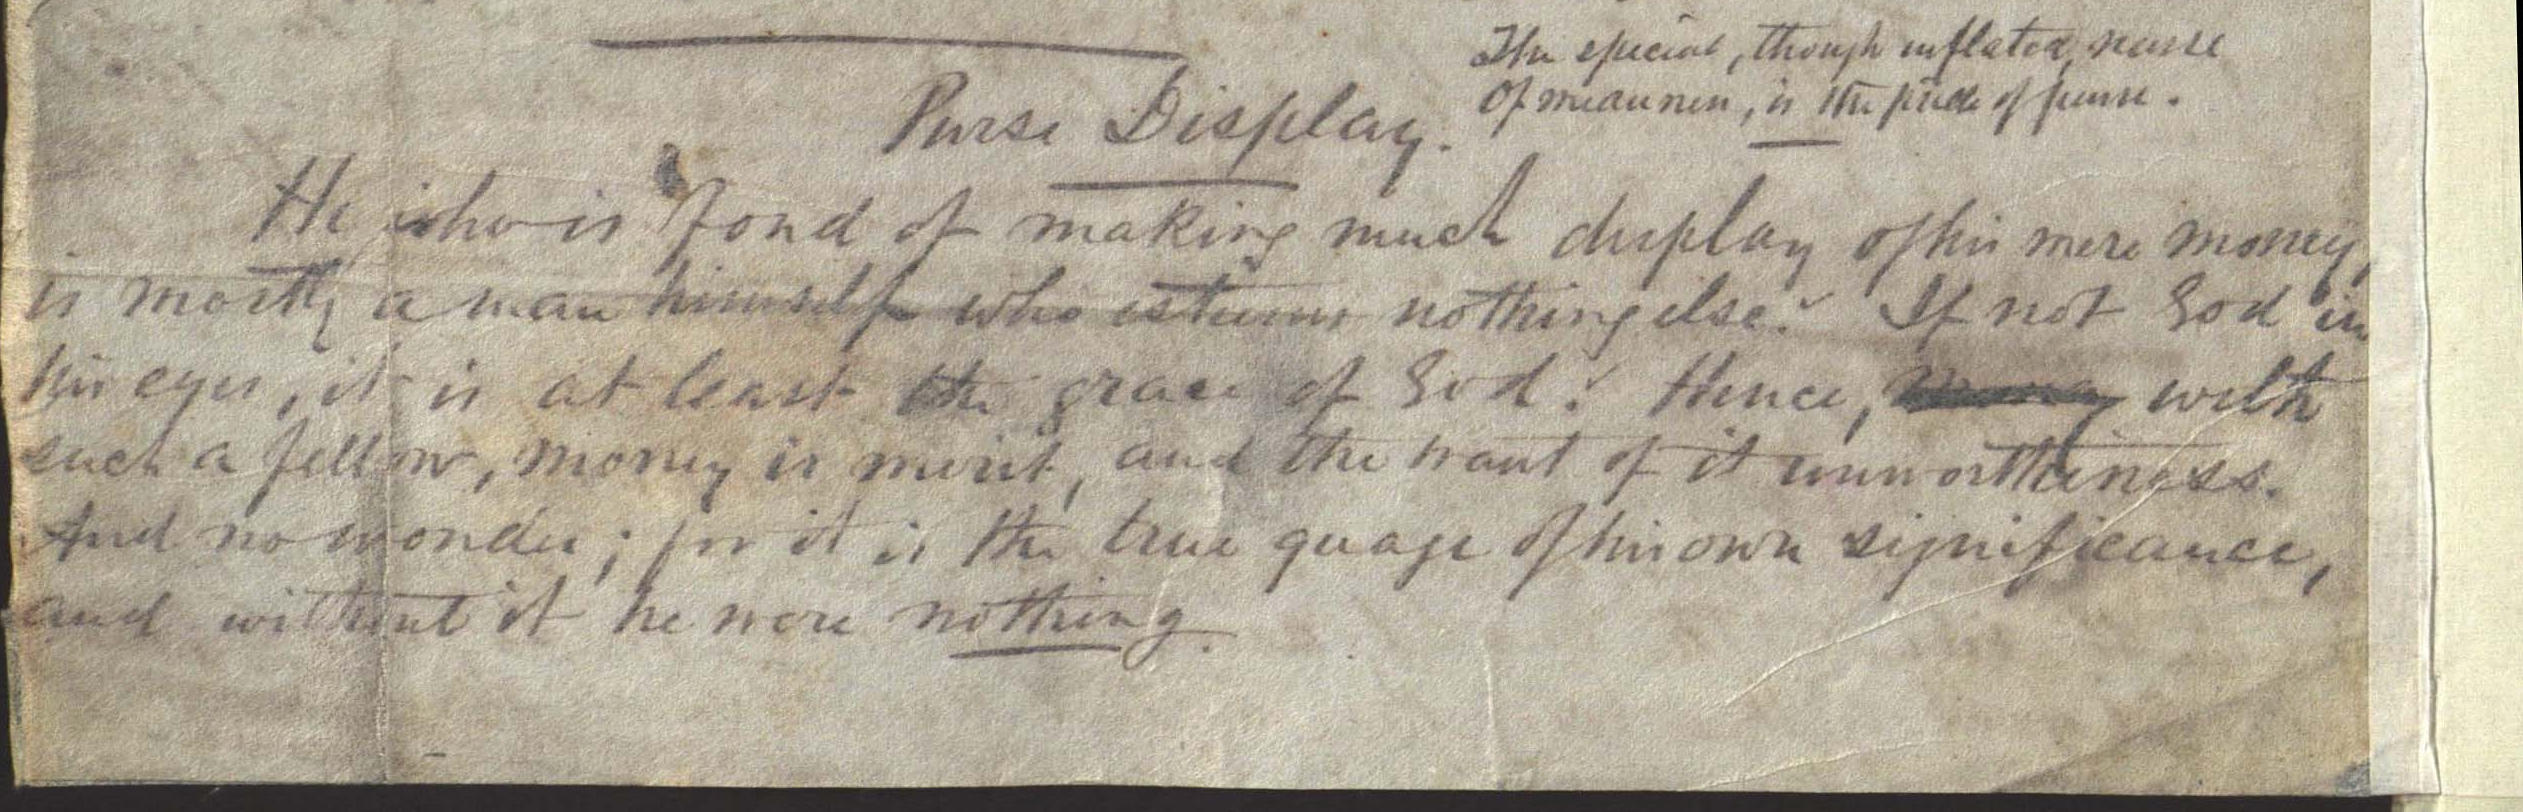 The special, though inflated, sense
Of meanness, is the pride of purse.
Purse Display.
He who is fond of making much display of his mere money,
is mostly a man himself who esteems nothing else. If not God in
his eyes, it is at least the grace of God. Hence, with
such a fellow, money is merit, and the want of it unworthiness.
And no wonder; for it is the true guage of his own significance,
and without it he were nothing.